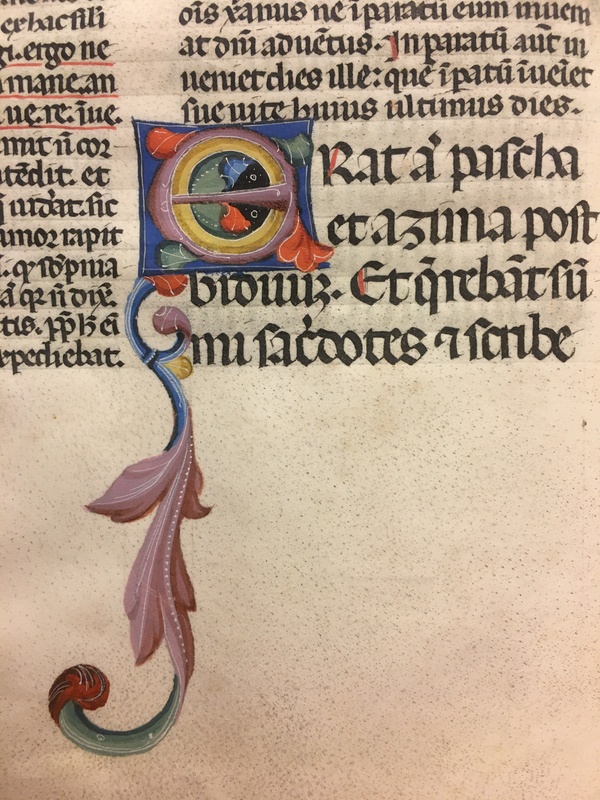 exhac sili
gi. ergo ne
mane. an
ue. re. iue.
mit ñ cor
tẽdit. et
iurat. sic
amor rapit
ã qr ñ dix̃.
tis. pp̃ h̃ ei
epediebat.
oĩs xãnus ne ĩparatũ eum inueni
at dñi aduẽtus. Inparatũ aũt in
ueniet dies ille: quẽ ĩpatũ ĩueĩet
sue uite huius ultimus dies.
ERat ã pascha
et azima post
biduuʒ. Et q̃rebãt sũ
mi sac̃dotes ⁊ scribe